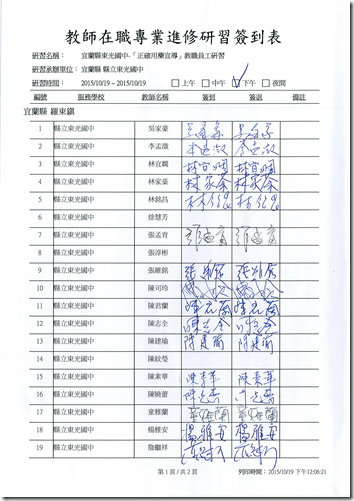 教師在職專業進修研習簽到表
研習名稱： 宜蘭縣東光國中-「正確用藥宣導」教職員工研習
研習承辦單位： 宜蘭縣 縣立東光國中
研習時間： 2015/10/19～2015/10/19 □上午 □中午 □下午 □夜間
編號 服務學校 教師名稱 簽到 簽退 備註
宜蘭縣 羅東鎮
1 縣立東光國中 吳家豪
2 縣立東光國中 李孟澂
3 縣立東光國中 林宜嫻 林宜嫻 林宜嫻
4 縣立東光國中 林家豪 林家豪 林家豪
5 縣立東光國中 林銘昌
6 縣立東光國中 徐慧芳
7 縣立東光國中 張孟育
8 縣立東光國中 張淳彬
9 縣立東光國中 張維銘
10 縣立東光國中 陳可玲
11 縣立東光國中 陳君蘭
12 縣立東光國中 陳志全
13 縣立東光國中 陳建瑜
14 縣立東光國中 陳姣瑩
15 縣立東光國中 陳素華 陳素華
16 縣立東光國中 陳曉蕾
17 縣立東光國中 童雅蘭 童雅蘭 童雅蘭
18 縣立東光國中 楊雅安 楊雅安 楊雅安
19 縣立東光國中 詹繼祥
第 1 頁 / 共 2 頁 列印時間：2015/10/19 下午 12:06:21